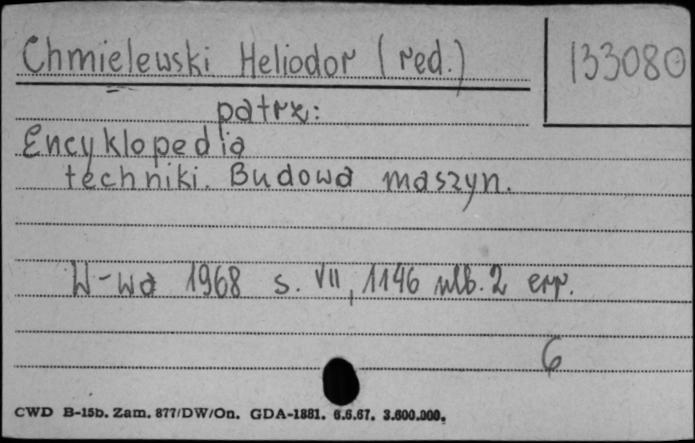 Chmielewski Heliodor (red.)
133080
patrz:
Encyklopedia
techniki. Budowa maszyn.
W-wa 1968 s. VII, 1146 nlb. 2 err.
6
CWD B-15b. Zam. 877/DW/On. GDA-1881. 6.6.67. 3.600.000.